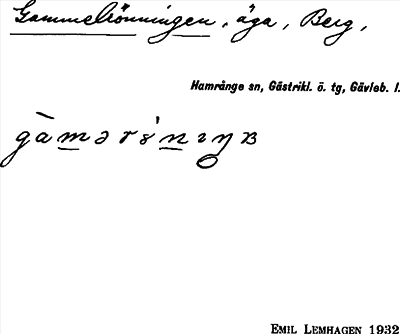 Gammelrönningen, äga, Berg,
Hamrånge sn, Gästrikl. ö. tg, Gävleb. l.
gàmərö́nıŋʙ
EMIL LEMHAGEN 1932